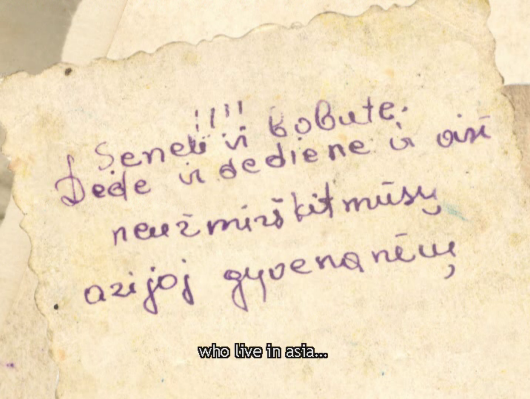 !!!!
Seneli ir bobute.
Dėde ir dėdiene ir visi
neužmirškit mūsų
azijoj gyvenančių
who live in asia...